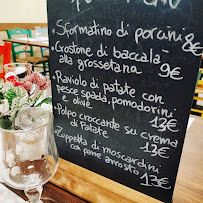 Sformatino di porcini 8€
Crostone di baccalà
alla grossetana 9€
Raviolo di patate con
pesce spada, pomodorini
e olive 13€
Polpo croccante su crema
di Patate 13€
Zuppetta di moscardini
con pane arrosto 13€